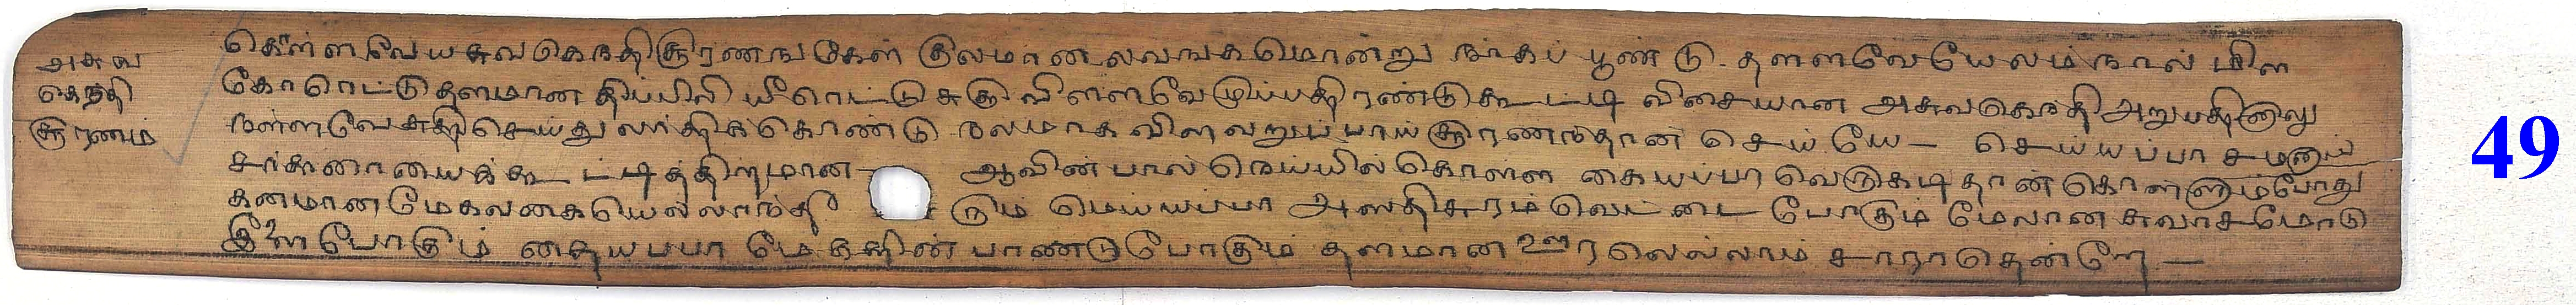 அசுவ
கெந்தி
சூரணம்
கொள்ளவேயசுவகெந்திசூரணங்கேள் குலமானலவங்கமொன்று நாகப் பூண்டு தள்ளவேயேலம்நால் மிள
கோரெட்டுதளமான திப்பிலி யீரெட்டு சுக்குவிள்ளவேமுப்பதிரண்டுகூட்டி விசையான அசுவகெந்தி அறுபதினாலு
நள்ளவேசுத்திசெய்து வாந்திகொண்டு நலமாக விளவறுப்பாய்சூரணந்தான் செய்யே — செய்யப்பா சமனாய்
சர்க்கரையைக்கூட்டித்திறமான ஆவின்பால்நெய்யில்கொள்ள கையப்பா வெருகடிதான்கொள்ளும்போது
கனமானமேகவகையெல்லாந்தீரும் மெய்யப்பா அஸ்திசுரம்வெட்டை போகும் மேலான சுவாசமோடு
இளைபோகும் தையப்பா மேகத்தின்பாண்டுபோகும் தளமான ஊரலெல்லாம் சாராதென்றே —
49